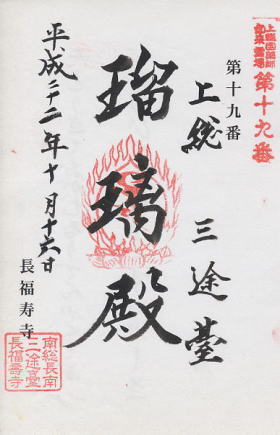 上総国薬師
如来霊場
第十九番
第十九番
上総 三途臺
瑠璃殿
平成二十二年十月十六日
長福寿寺
南総長南
三途臺
長福壽寺